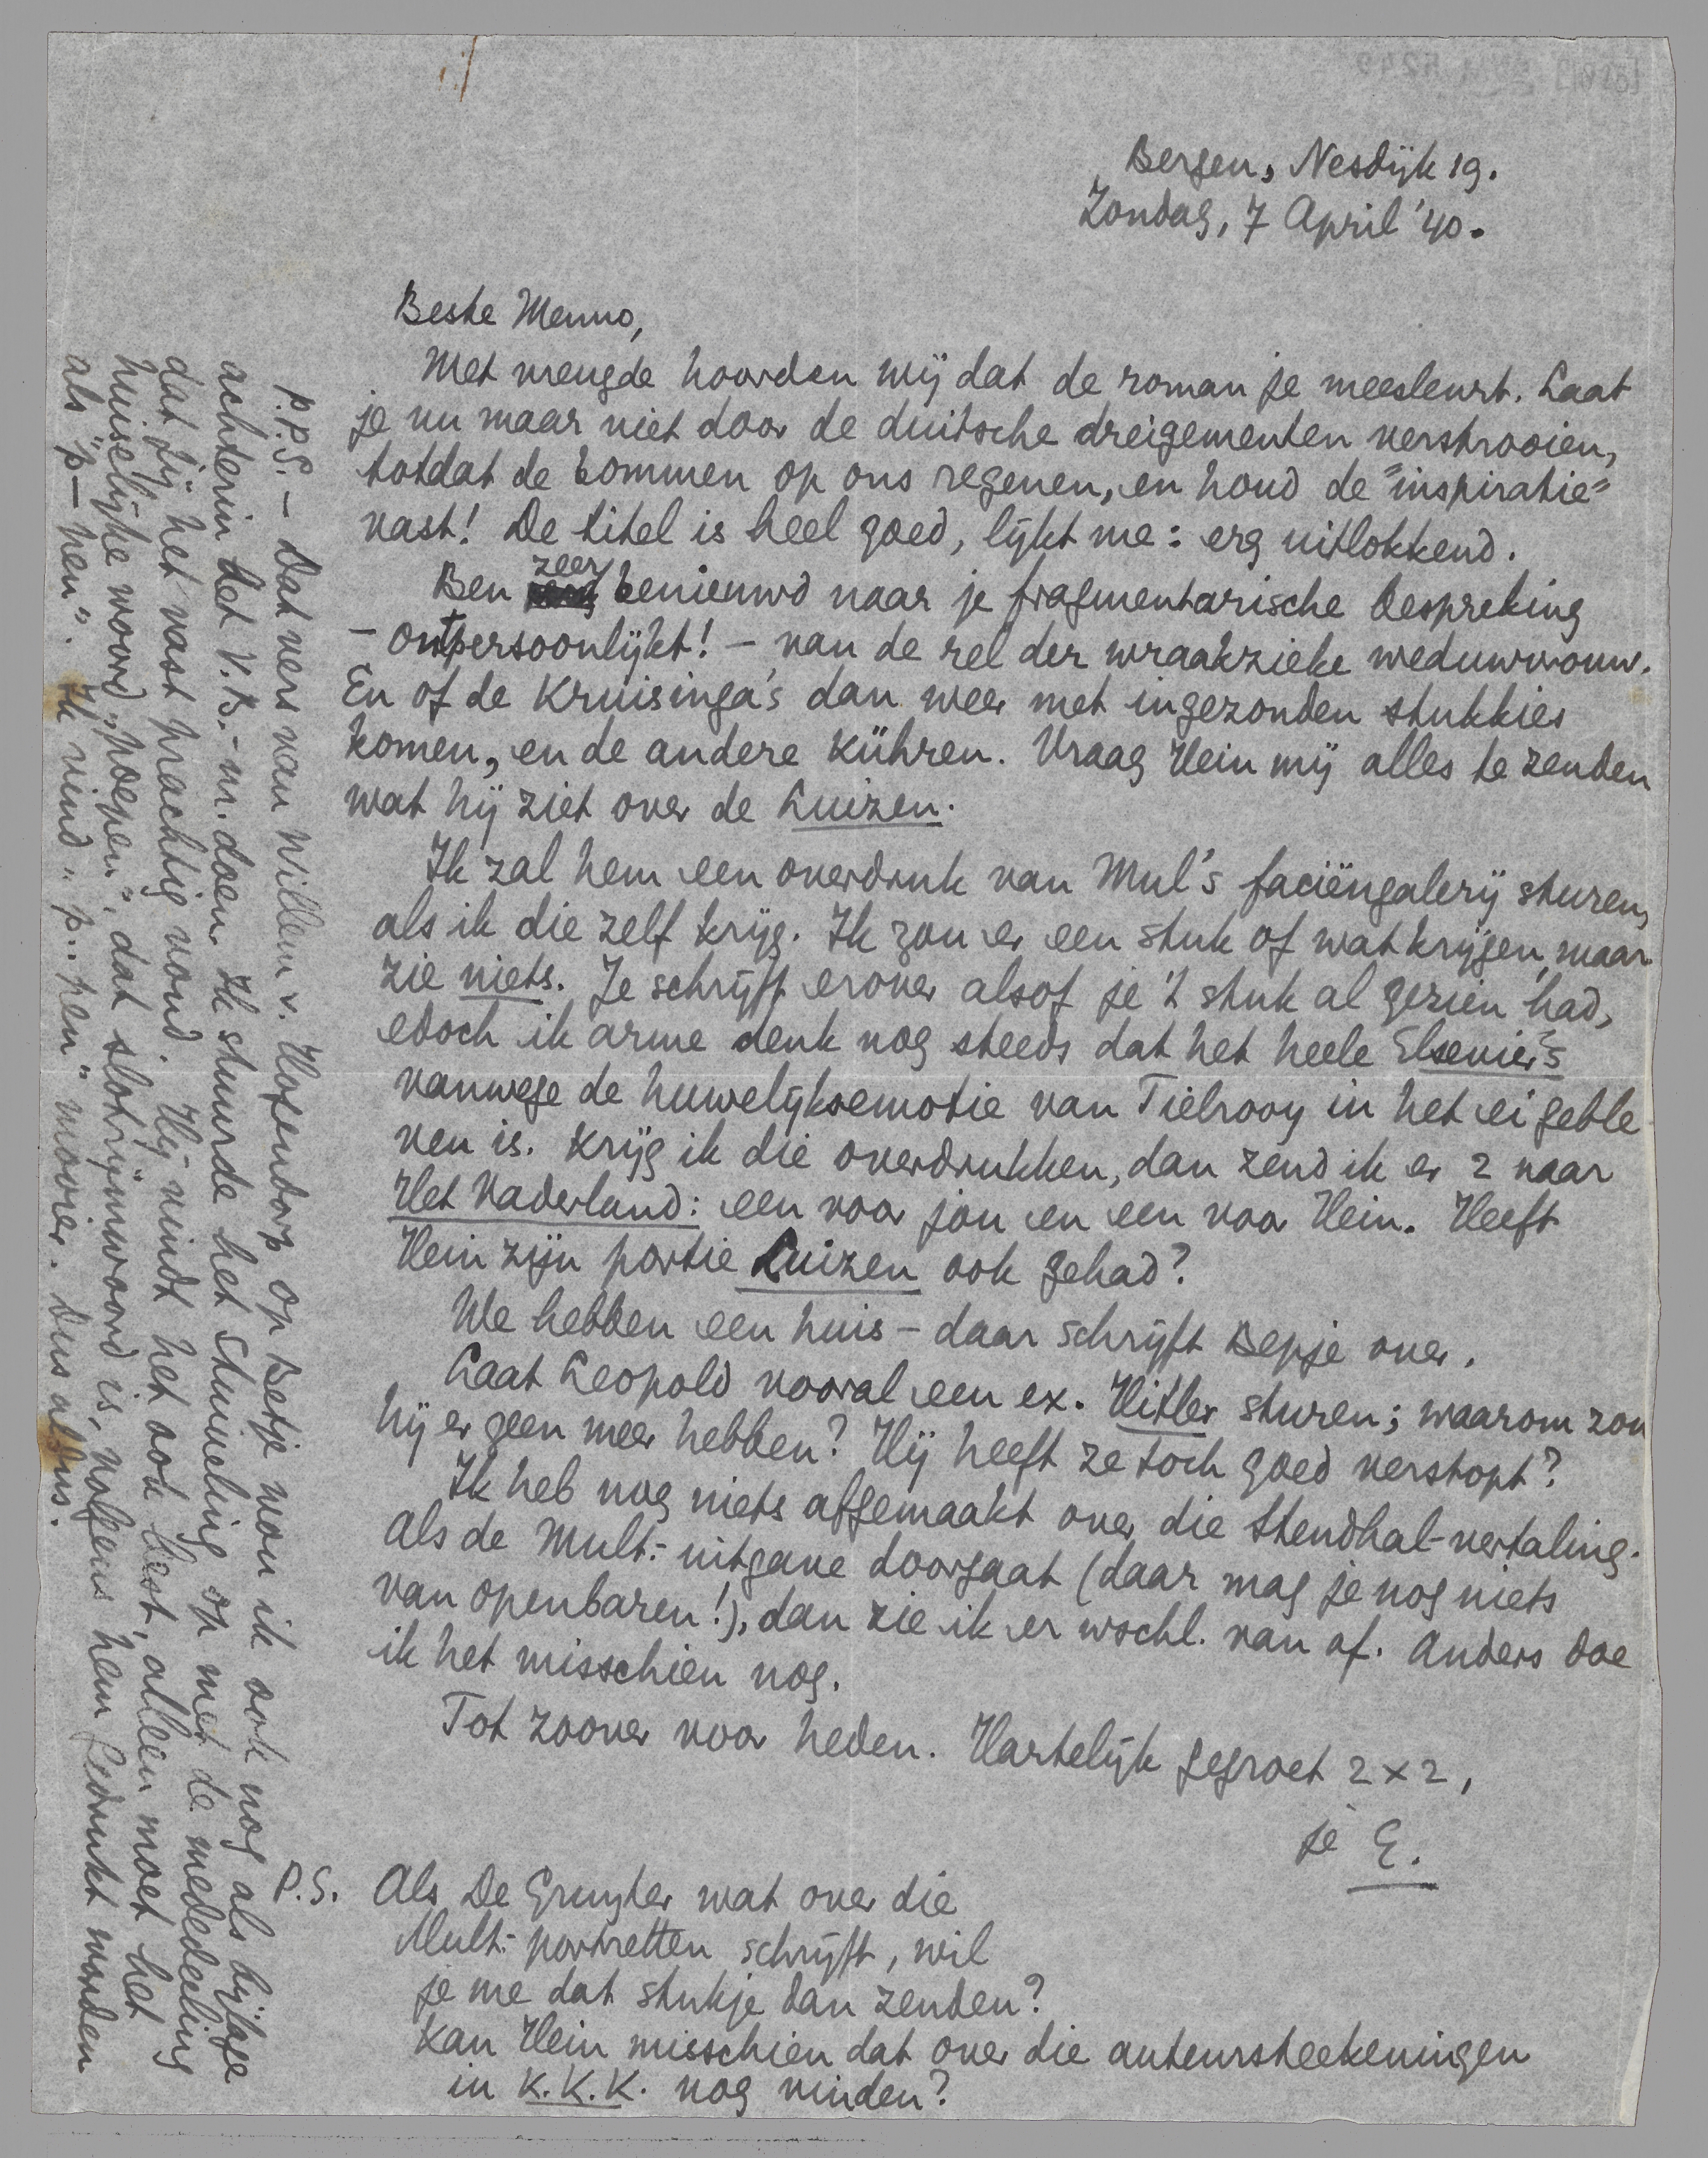 Bergen, Nesdijk 19.
Zondag, 7 April '40.
Beste Menno,
Met vreugde hoorden wij dat de roman je meesleurt. Laat
je nu maar niet door de duitsche dreigementen verstrooien,
totdat de bommen op ons regenen, en houd de "inspiratie"
vast! De titel is heel goed, lijkt me: erg uitlokkend.
Ben zeer benieuwd naar je fragmentarische bespreking
– ontpersoonlijkt! – van de rel der wraakzieke weduwvrouw.
En of de Kruisinga's dan weer met ingezonden stukkies
komen, en de andere Kühren. Vraag Hein mij alles te zenden
wat hij ziet over de Luizen.
Ik zal hem een overdruk van Mul's faciëngalerij sturen,
als ik die zelf krijg. Ik zou er een stuk of wat krijgen, maar
zie niets. Je schrijft erover alsof je 't stuk al gezien had,
edoch ik arme denk nog steeds dat het heele Elsevier's
vanwege de huwelijksemotie van Tielrooy in het ei geble-
ven is. Krijg ik die overdrukken, dan zend ik er 2 naar
Het Vaderland: een voor jou en een voor Hein. Heeft
Hein zijn portie Luizen ook gehad?
We hebben een huis – daar schrijft Bepje over.
Laat Leopold vooral een ex. Hitler sturen; waarom zou
hij er geen meer hebben? Hij heeft ze toch goed verstopt?
Ik heb nog niets afgemaakt over die Stendhal-vertaling.
Als de Mult.-uitgave doorgaat (daar mag je nog niets
van openbaren!), dan zie ik er wschl. van af. Anders doe
ik het misschien nog.
Tot zoover voor heden. Hartelijk gegroet 2 x 2,
je E.
P.S. Als De Gruyter wat over die
Mult.-portretten schrijft, wil
je me dat stukje dan zenden?
Kan Hein misschien dat over die auteursteekeningen
in K.K.K. nog vinden?
P.P.S. – Dat vers van Willem v. Hogendorp op Betje wou ik ook nog als bijlage
achterin het V.B.-nr. doen. Ik stuurde het Stuiveling op met de mededeeling
dat jij het vast prachtig vond. Hij vindt het ook best, alleen moet het
huiselijke woord "poepen", dat slotrijmwoord is, volgens hem gedrukt worden
als "p—pen". Ik vind "p..pen" mooier. Dus aldus.